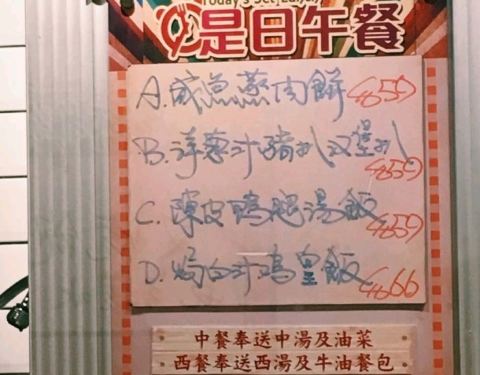 Today's Set Lunch
是日午餐
A. 咸魚蒸肉餅
B. 洋蔥汁豬扒汉堡扒
C. 陳皮鴨腿湯飯
D. 焗白汁鸡皇飯 $66
中餐奉送中湯及油菜
西餐奉送西湯及牛油餐包